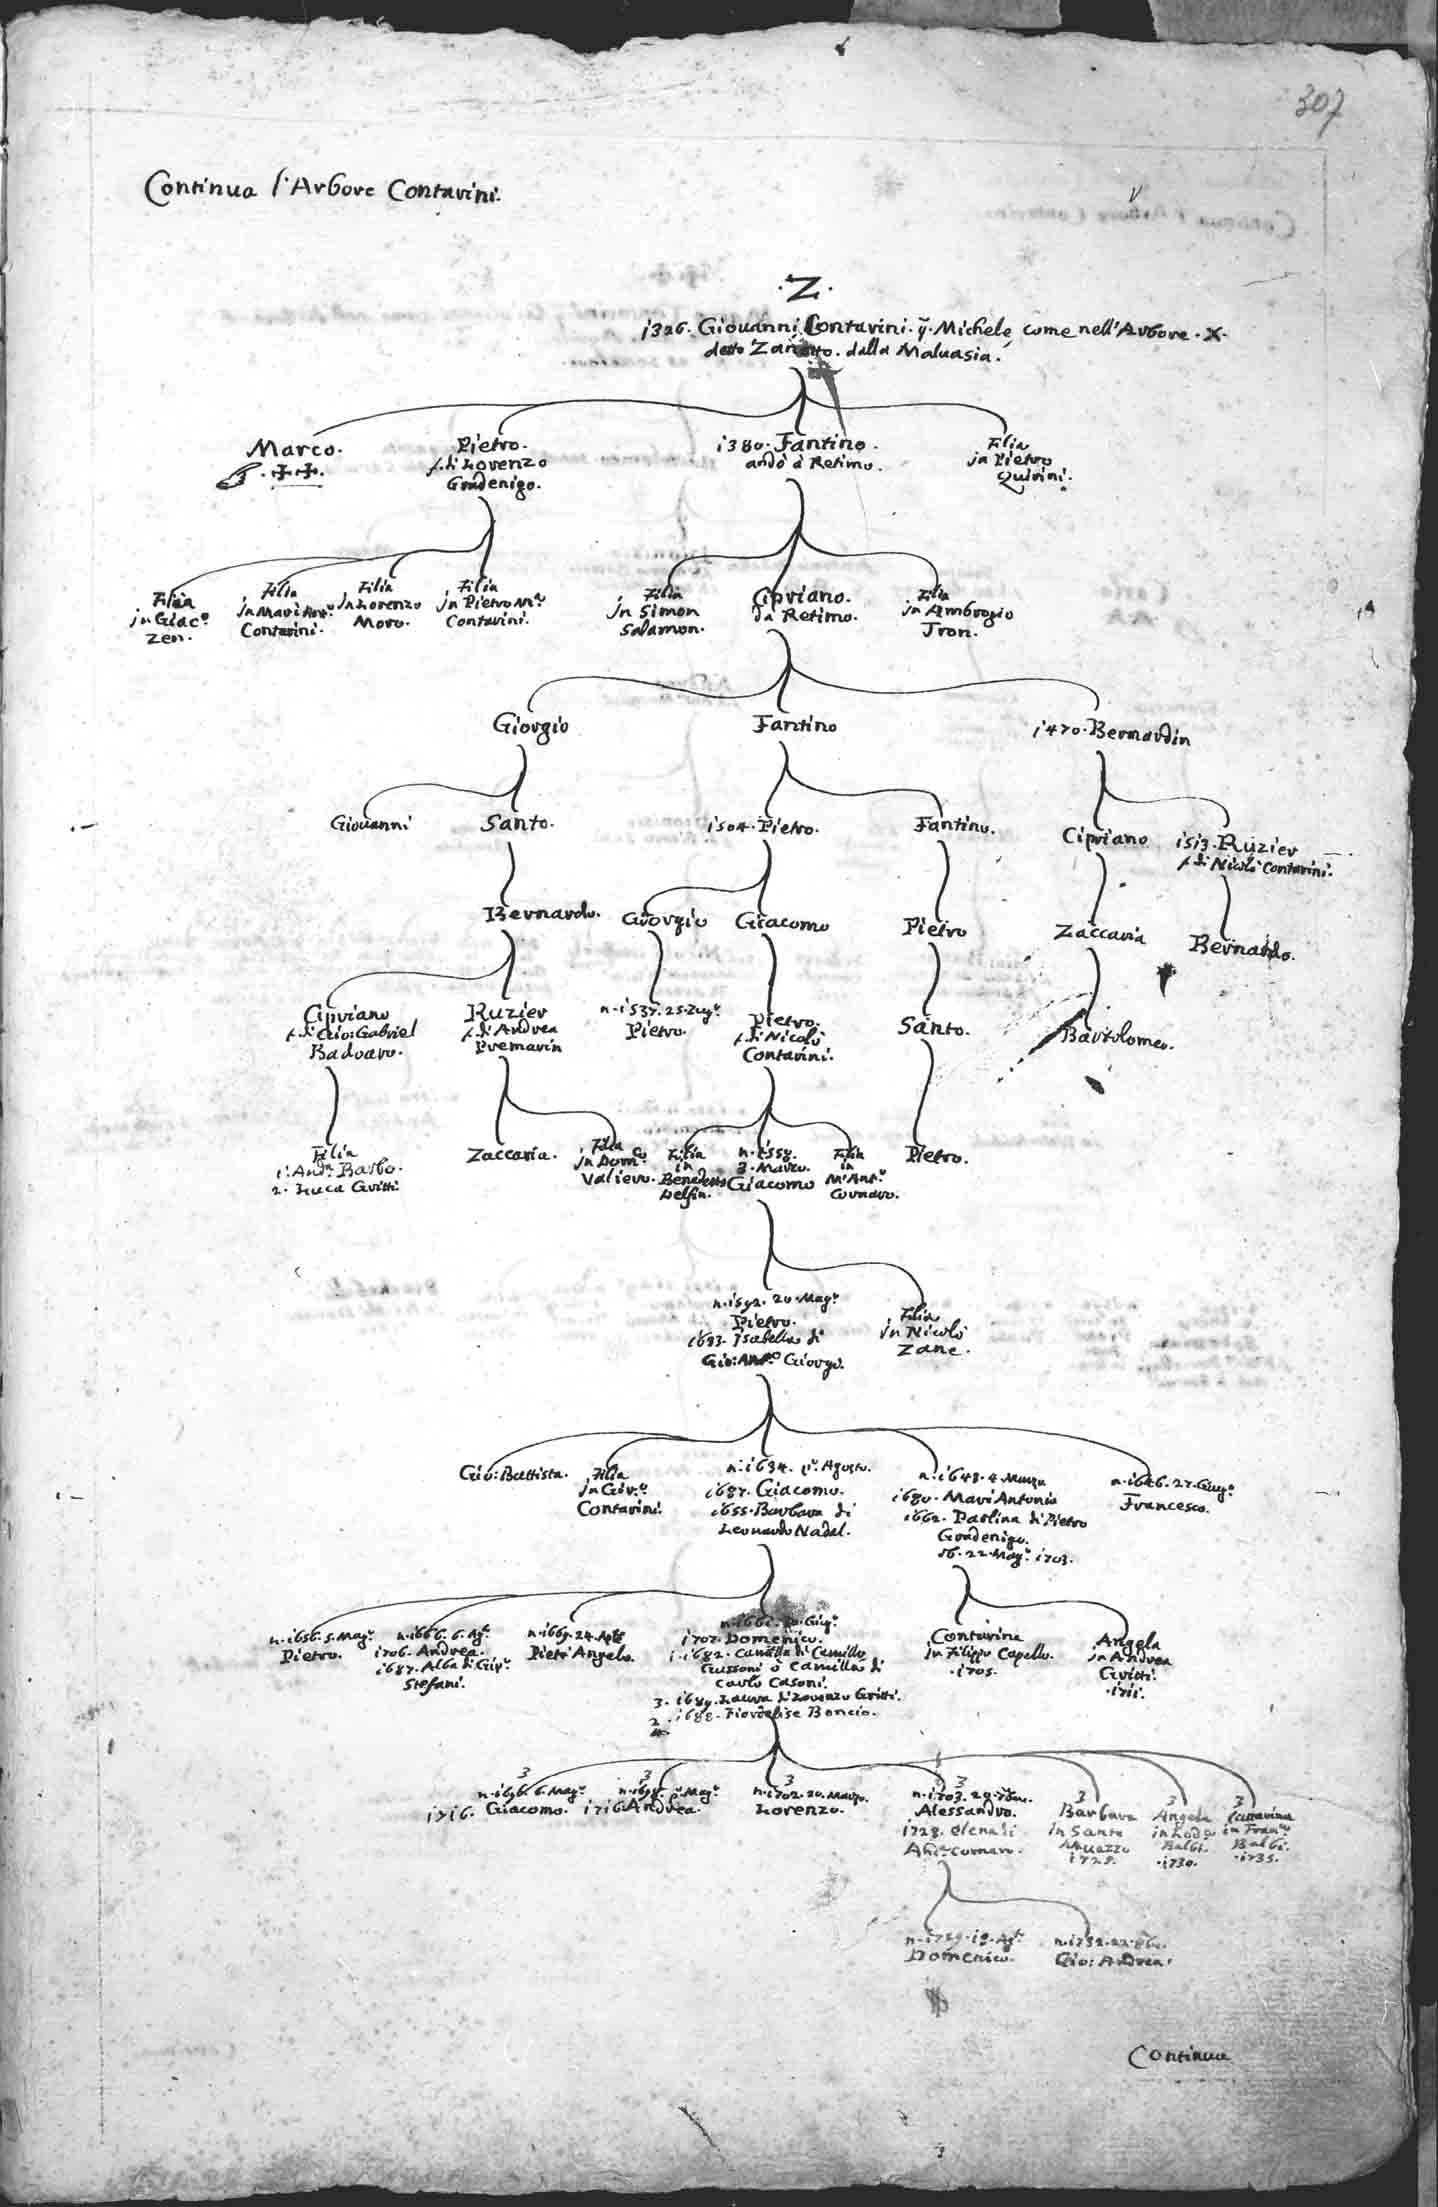 307
Continua l'Arbore Contarini.
.Z.
1326. Giouanni Contarini. q. Michele come nell'Arbore. X.
detto Zanetto. dalla Maluasia.
Marco.
Pietro.
f. di Lorenzo
Gradenigo.
1380. Fantino.
andò à Retimo.
Filia
in Pietro
Quirini.
Filia
in Giac.o
Zen.
Filia
in Mari Ant.o
Contarini.
Filia
in Lorenzo
Moro.
Filia
in Pietro M.a
Contarini.
Filia
in Simon
Salamon.
Cipriano.
da Retimo.
Filia
in Ambrogio
Tron.
Giorgio
Fantino
1470. Bernardin
Giouanni
Santo.
1504. Pietro.
Fantino.
Cipriano
1513. Ruzier
f. di Nicolò Contarini.
Bernardo.
Giorgio
Giacomo
Pietro
Zaccaria
Bernardo.
Cipriano
f. di Gio: Gabriel
Badoaro.
Ruzier
f. di Andrea
Premarin
n. 1537. 25.
Pietro.
Pietro.
f. di Nicolò
Contarini.
Santo.
Bartolomeo.
Filia
1. And.a Barbo.
2. Luca Gritti.
Zaccaria.
Filia
in Dom.o
Valiero.
Filia
in
Benedetto
Delfin.
n. 1558.
3. Marzo.
Giacomo
Filia
in
M. Ant.o
Cornaro.
Pietro.
n. 1592. 20. Mag.o
Pietro.
Isabella di
Gio: Ant.o Giorgo.
Filia
in Nicolò
Zane.
Gio: Battista.
Filia
in Gir.o
Contarini.
n. 1634. p.o Agosto.
1687. Giacomo.
1655. Barbara di
Leonardo Nadal.
n. 1643. 4. Marzo
1680. Mari Antonio
1662. Paolina di Pietro
Gradenigo.
22. Mag.o 1703.
n. 1646. 27. Giug.o
Francesco.
n. 1656. 5. Mag.o
Pietro.
n. 1666. 6. Ag.o
1706. Andrea.
1687. Alba di Gir.o
Stefani.
n. 1669. 24.
Pietr' Angelo.
n. 1661. Giug.o
1707. Domenico.
1. 1682. Camilla di Camillo
Gussoni ò Camilla di
Carlo Casoni.
3. 1689. Laura di Lorenzo Gritti.
2. 1688. Fiordelise Boncio.
Contarina
in Filippo Capello.
1705.
Angela
in Andrea
Gritti.
1711.
3
n. 1696. 6. Mag.o
1716. Giacomo.
3
p.o Mag.o
1716 Andrea.
3
n. 1702. 20. Marzo.
Lorenzo.
3
n. 1703. 29.
Alessandro.
1728. Elena di
And.a Cornaro.
3
Barbara
in Santo
Muazzo
1728.
3
Angela
in Lodo
Balbi.
1730.
3
Cattarina
in Fran.o
Balbi.
1735.
n. 1729. 19. Ag.o
Domenico.
n. 1732. 22.
Gio: Andrea.
Continua